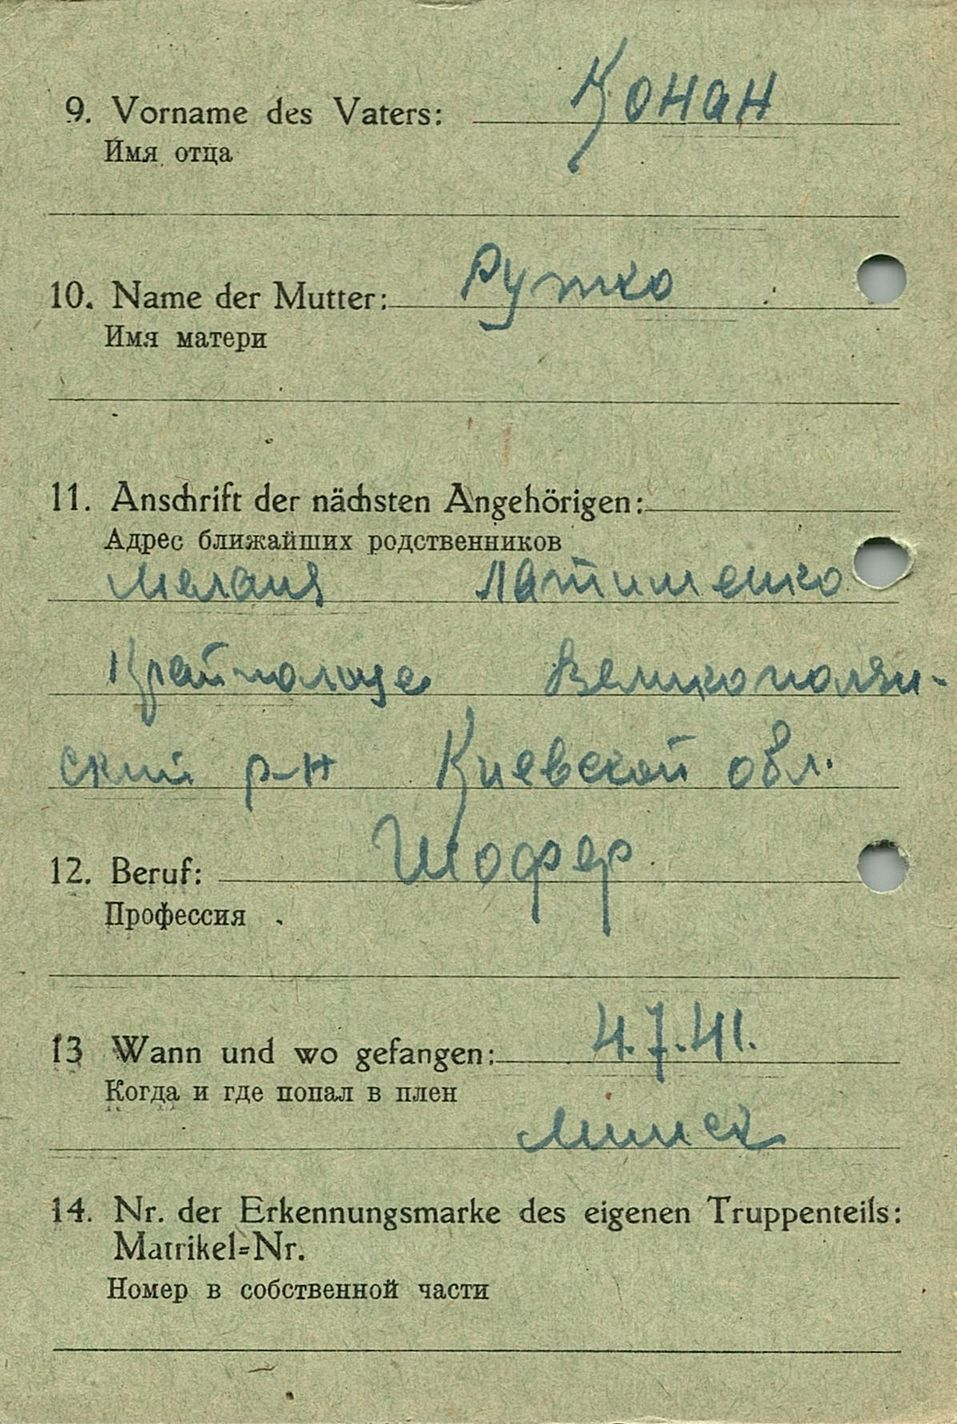 9. Vorname des Vaters: Конан
Имя отца
10. Name der Mutter: Рутко
Имя матери
11. Anschrift der nächsten Angehörigen:
Адрес ближайших родственников
Мелания Латишенко
Великополян-
ский р-н Киевской обл.
12. Beruf: Шофер
Профессия
13 Wann und wo gefangen: 4.7.41.
Когда и где попал в плен
Минск
14. Nr. der Erkennungsmarke des eigenen Truppenteils:
Matrikel=Nr.
Номер в собственной части